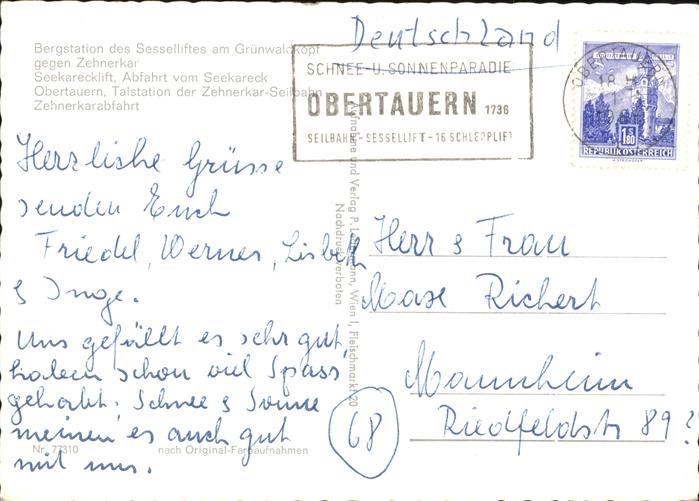 Bergstation des Sesselliftes am Grünwaldkopf
gegen Zehnerkar
Seekarecklift, Abfahrt vom Seekareck
Obertauern, Talstation der Zehnerkar-Seilbahn
Zehnerkarabfahrt
Deutschland
SCHNEE-U. SONNENPARADIE
OBERTAUERN 1736
SEILBAHN-SESSELLIFT-16 SCHLEPPLIFT
OBERTAUERN
18
1
S 1.80
REPUBLIK ÖSTERREICH
Herzliche Grüsse
senden Euch
Friedel, Werner, Lisbeth
& Inge.
Uns gefällt es sehr gut,
haben schon viel Spass
gehabt. Schnee & Sonne
meinen es auch gut
mit uns.
Nr. 77310
nach Original-Farbaufnahmen
Aufnahme und Verlag P. Wien I, Fleischmarkt 20
Nachdruck verboten
Herr & Frau
Max Richert
68
Mannheim
Riedfeldstr 89?